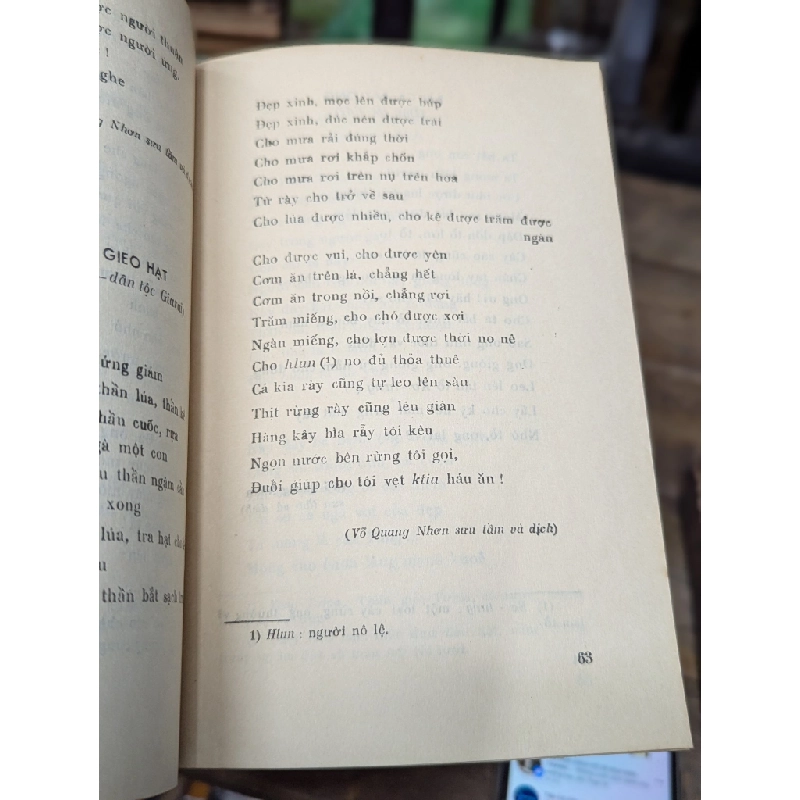 ợc người thuần
ợc người ưng.
!
ghe
Nhơn sưu tầm
GIEO HẠT
dân tộc
ứng giám
thần lúa, thần
thần cuốc, rựa
gà một con
u thần ngàn
xong
lúa, tra hạt
u
thần bắt sạch
Đẹp xinh, mọc lên được bắp
Đẹp xinh, đúc nên được trái
Cho mưa rải đúng thời
Cho mưa rơi khắp chốn
Cho mưa rơi trên nụ trên hoa
Từ rày cho trở về sau
Cho lúa được nhiều, cho kê được trăm được
ngàn
Cho được vui, cho được yên
Cơm ăn trên lá, chẳng hết
Cơm ăn trong nồi, chẳng rơi
Trăm miếng, cho chó được xơi
Ngàn miếng, cho lợn được thời no nê
Cho hlun (1) no đủ thỏa thuê
Cá kia rày cũng tự leo lên sàn
Thịt rừng rày cũng lên giàn
Hàng kây bìa rẫy tôi kêu
Ngọn nước bên rừng tôi gọi,
Đuổi giúp cho tôi vẹt ktia háu ăn !
(Võ Quang Nhơn sưu tầm và dịch)
1) Hlun : người nô lệ.
63